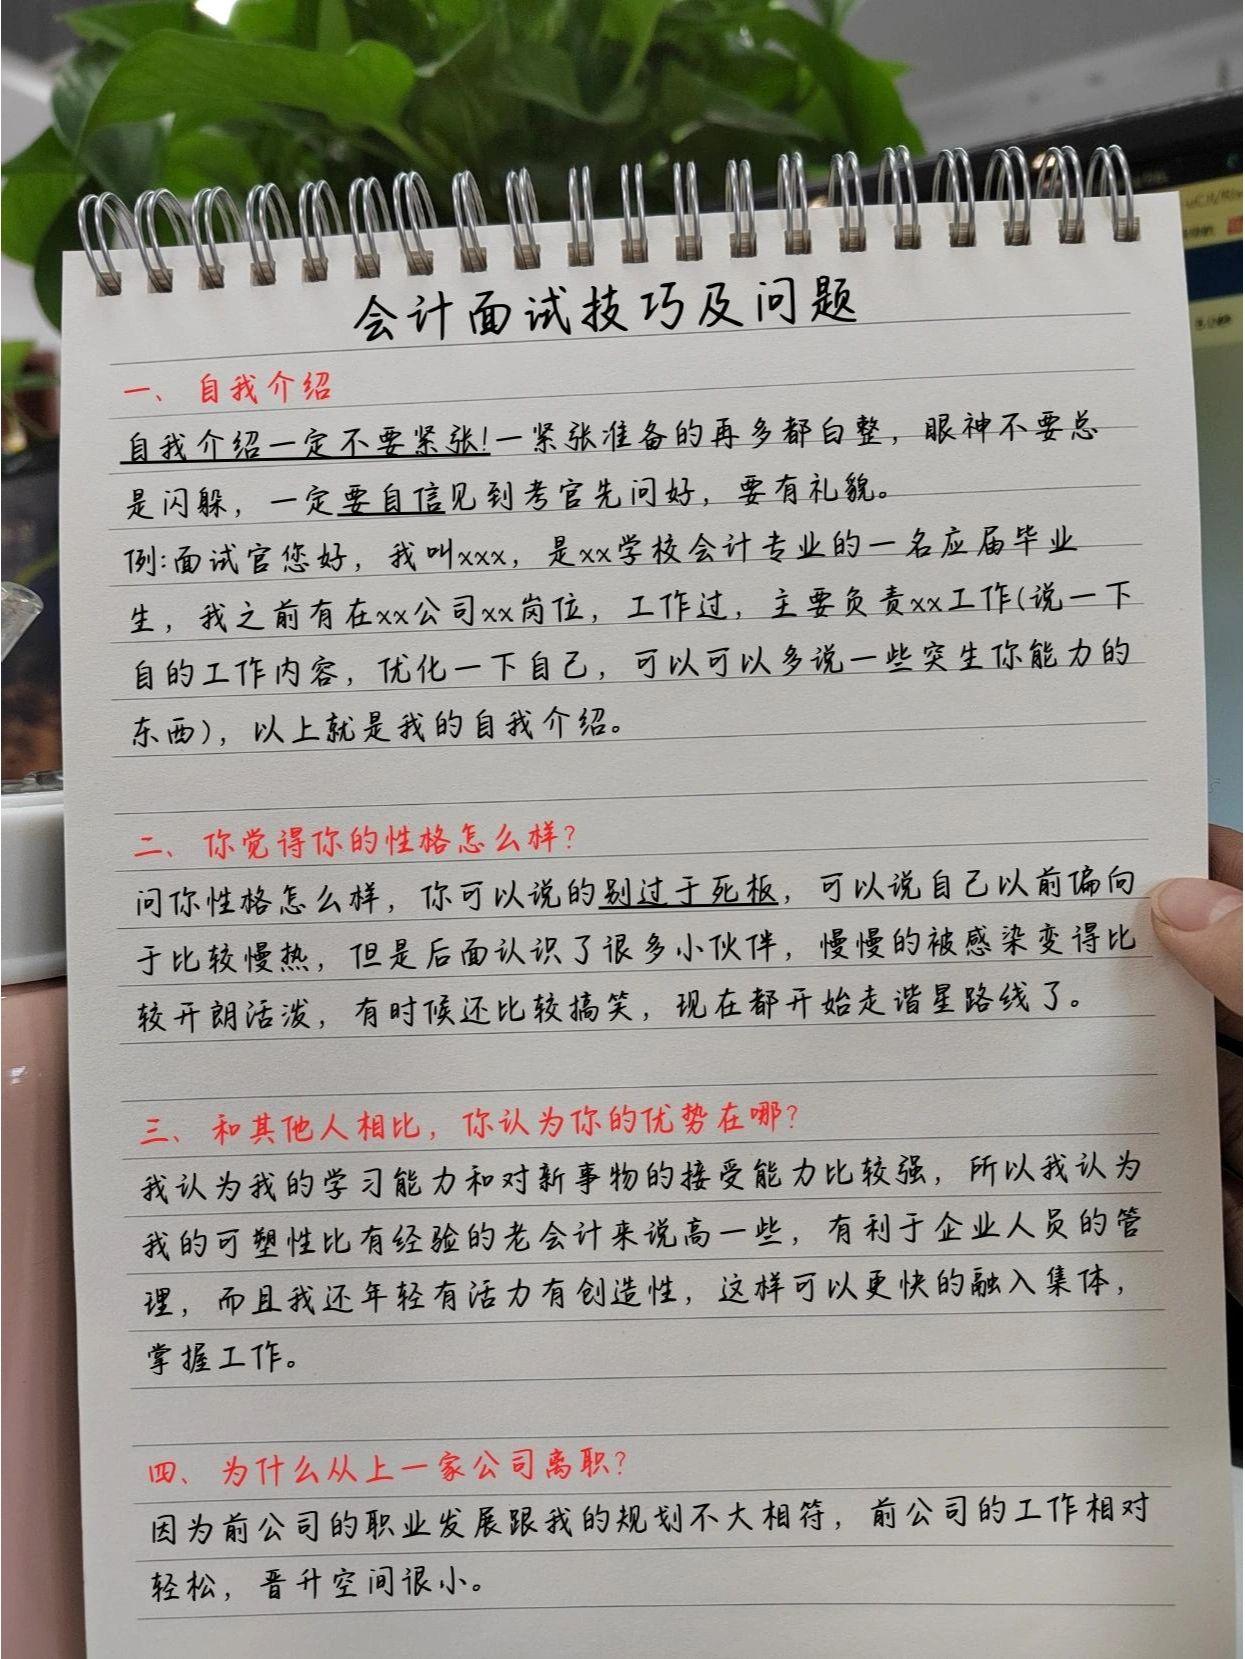 会计面试技巧及问题
一、自我介绍
自我介绍一定不要紧张!一紧张准备的再多都白整，眼神不要总
是闪躲，一定要自信见到考官先问好，要有礼貌。
例:面试官您好，我叫xxx，是xx学校会计专业的一名应届毕业
生，我之前有在xx公司xx岗位，工作过，主要负责xx工作(说一下
自的工作内容，优化一下自己，可以可以多说一些突生你能力的
东西)，以上就是我的自我介绍。
二、你觉得你的性格怎么样?
问你性格怎么样，你可以说的别过于死板，可以说自己以前偏向
于比较慢热，但是后面认识了很多小伙伴，慢慢的被感染变得比
较开朗活泼，有时候还比较搞笑，现在都开始走谐星路线了。
三、和其他人相比，你认为你的优势在哪?
我认为我的学习能力和对新事物的接受能力比较强，所以我认为
我的可塑性比有经验的老会计来说高一些，有利于企业人员的管
理，而且我还年轻有活力有创造性，这样可以更快的融入集体，
掌握工作。
四、为什么从上一家公司离职?
因为前公司的职业发展跟我的规划不大相符，前公司的工作相对
轻松，晋升空间很小。